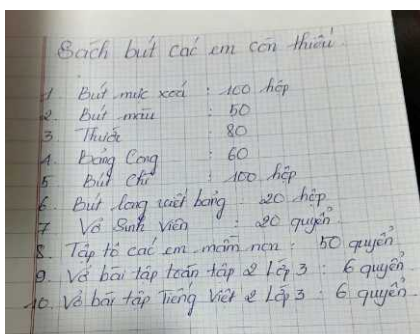 Sách bút các em còn thiếu.
1. Bút mực xoá : 100 hộp
2. Bút màu : 50
3 Thước : 80
4. Bảng Cong : 60
5 Bút chì : 100 hộp
6. Bút lông viết bảng : 20 hộp.
7 Vở Sinh Viên : 20 quyển.
8. Tập tô các em mầm non : 50 quyển
9. Vở bài tập toán tập 2 Lớp 3 : 6 quyển
10. Vở bài tập Tiếng Việt 2 Lớp 3 : 6 quyển.